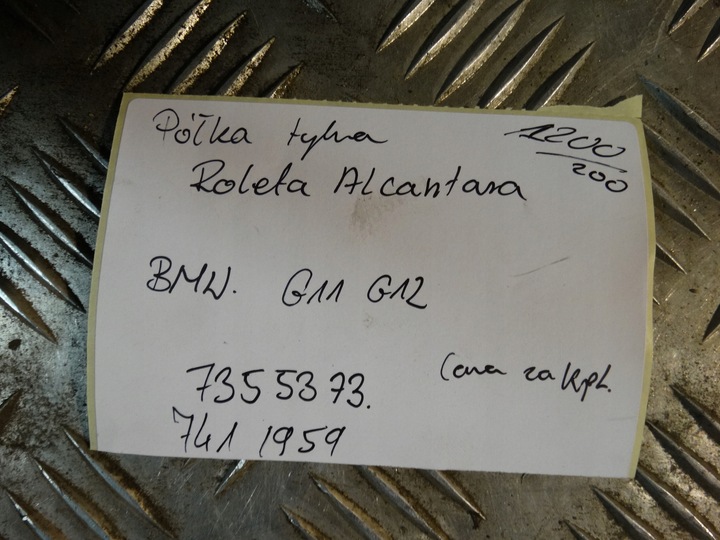 Półka tylna
1200
200
Roleta Alcantara
BMW. G11 G12
Cena za kpl.
7355373.
7411959